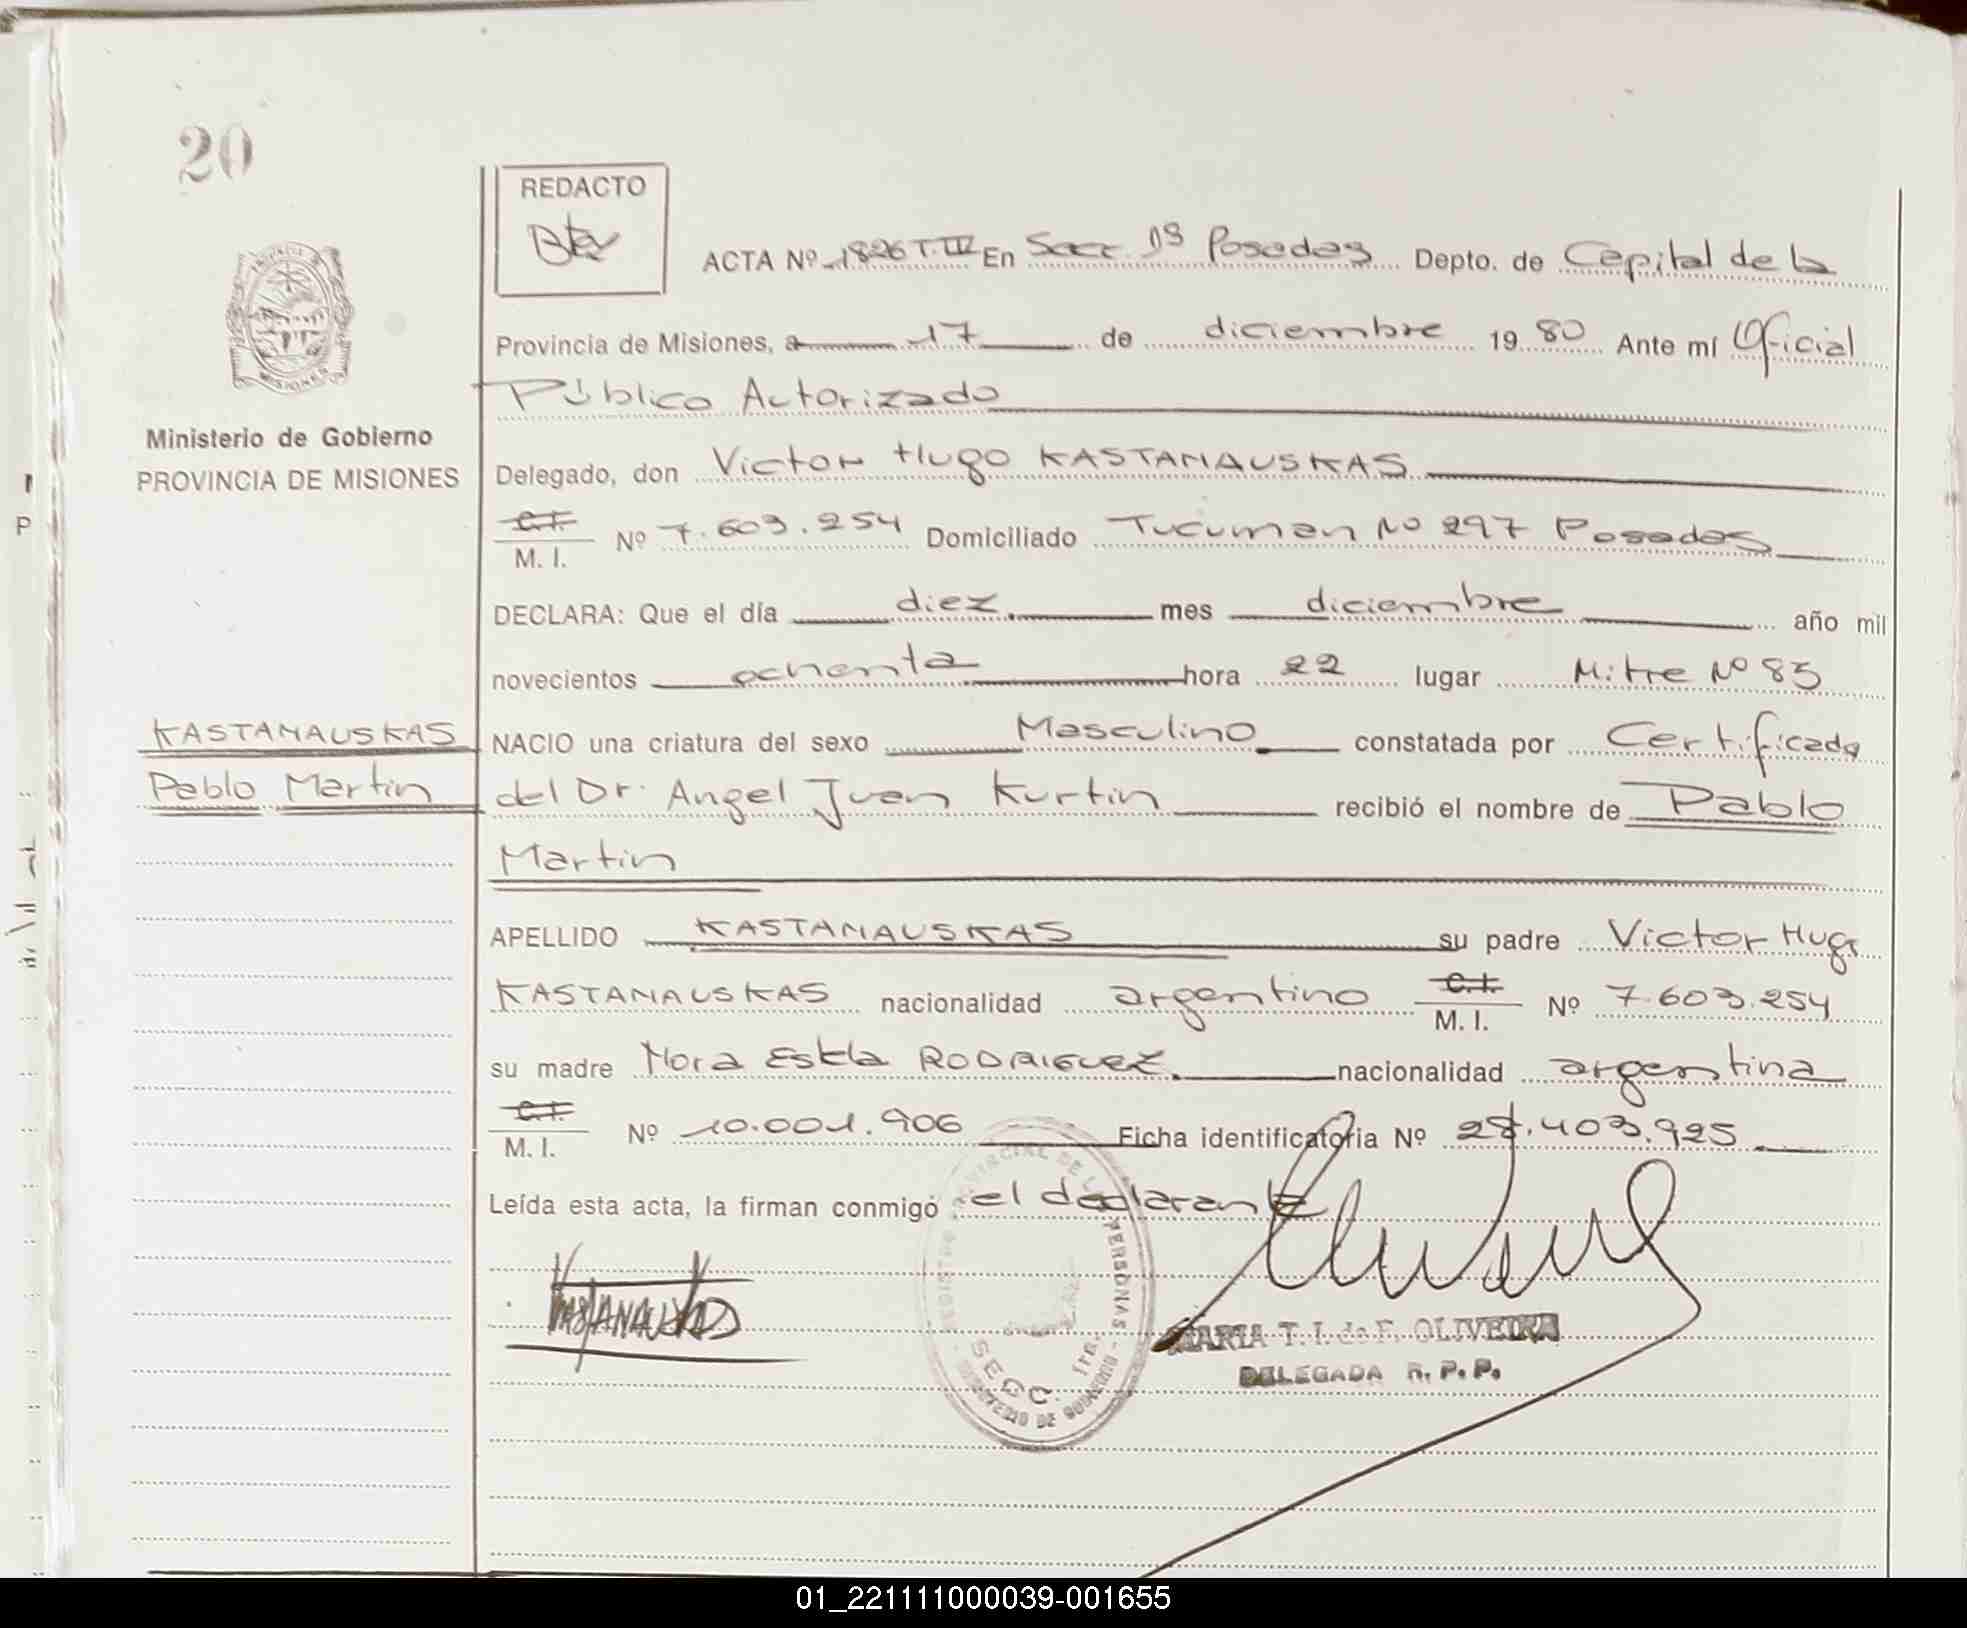 20
REDACTO
ACTA Nº 1826 T. IV En Secc. 1ª Posadas Depto. de Capital de la
Provincia de Misiones, a 17 de diciembre 1980 Ante mí Oficial
Público Autorizado
Ministerio de Gobierno
PROVINCIA DE MISIONES
Delegado, don Victor Hugo KASTANAUSKAS
C.I. M. I. Nº 7.603.254 Domiciliado Tucuman Nº 297 Posadas
DECLARA: Que el día diez mes diciembre año mil
novecientos ochenta hora 22 lugar Mitre Nº 85
KASTANAUSKAS
Pablo Martin
NACIO una criatura del sexo Masculino constatada por Certificado
del Dr. Angel Juan Kurtin recibió el nombre de Pablo
Martin
APELLIDO KASTANAUSKAS su padre Victor Hugo
KASTANAUSKAS nacionalidad argentino C.I. M. I. Nº 7.603.254
su madre Nora Estela RODRIGUEZ nacionalidad argentina
C.I. M. I. Nº 10.001.906 Ficha identificatoria Nº 28.403.925
Leída esta acta, la firman conmigo el declarante
KASTANAUSKAS
REGISTRO PROVINCIAL DE LAS PERSONAS
SECC. 1ra.
MINISTERIO DE GOBIERNO
MARIA T. I. de F. OLIVEIRA
DELEGADA R. P. P.
01_221111000039-001655